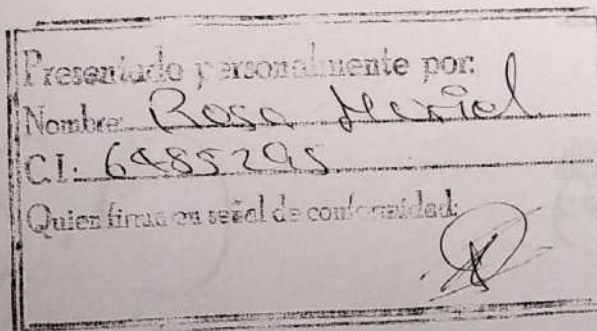 Presentado personalmente por:
Nombre: Rosa
C.I.: 6485295
Quien firma en señal de conformidad: